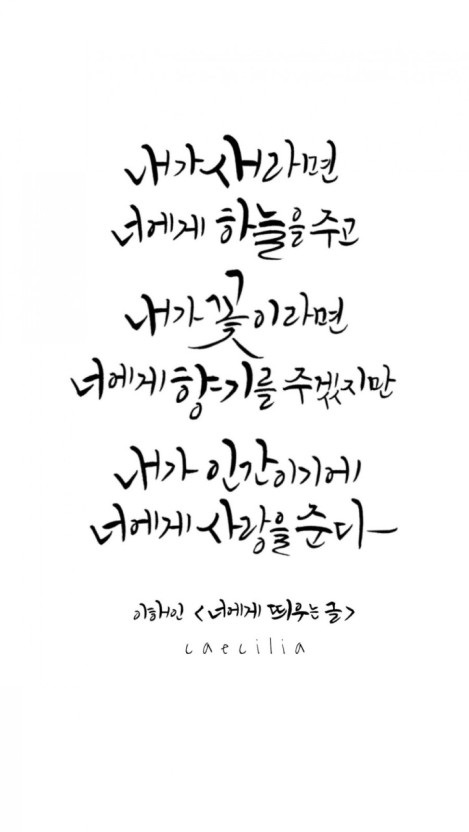 내가 새라면
너에게 하늘을 주고
내가 꽃이라면
너에게 향기를 주겠지만
내가 인간이기에
너에게 사랑을 준다-
이해인 <너에게 띄우는 글>
caecilia